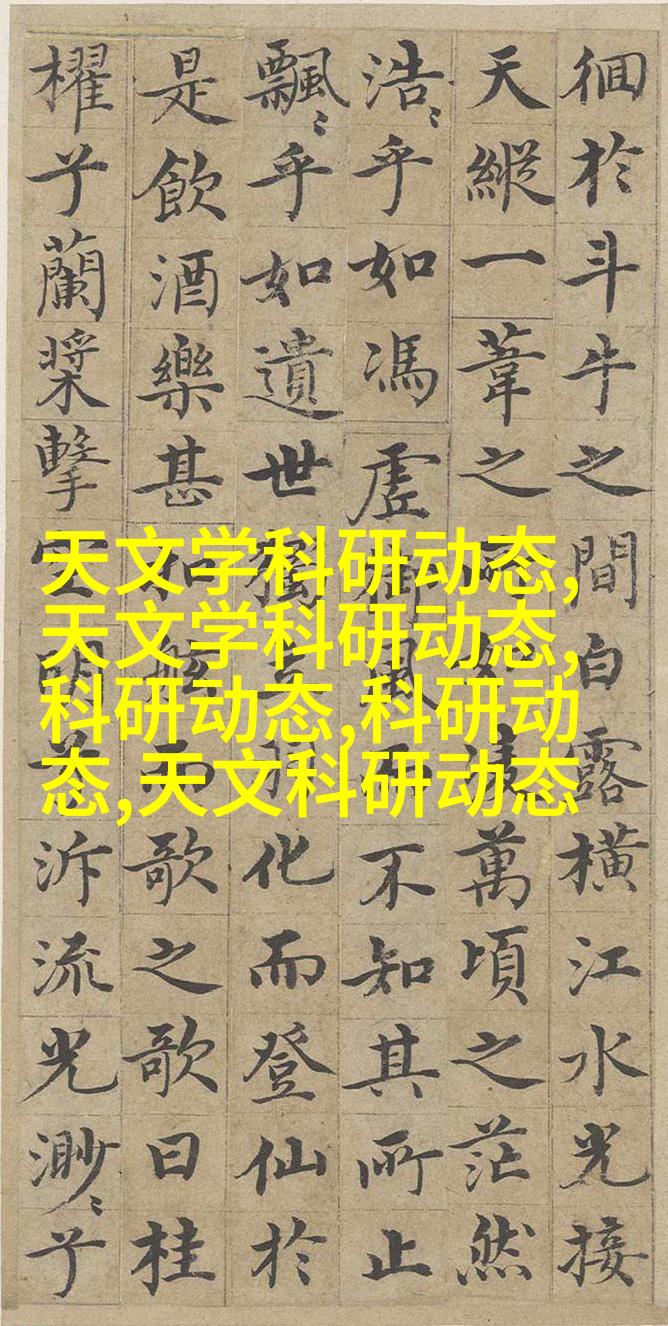 徊於斗牛之間白露橫江水光接
天縱一葦之所如凌萬頃之茫然
浩〻乎如馮虛御風而不知其所止
飄〻乎如遺世獨立羽化而登仙於
是飲酒樂甚扣舷而歌之歌曰桂
櫂兮蘭槳擊空明兮泝流光渺〻兮
天文学科研动态,
天文学科研动态,
科研动态,科研动
态,天文科研动态